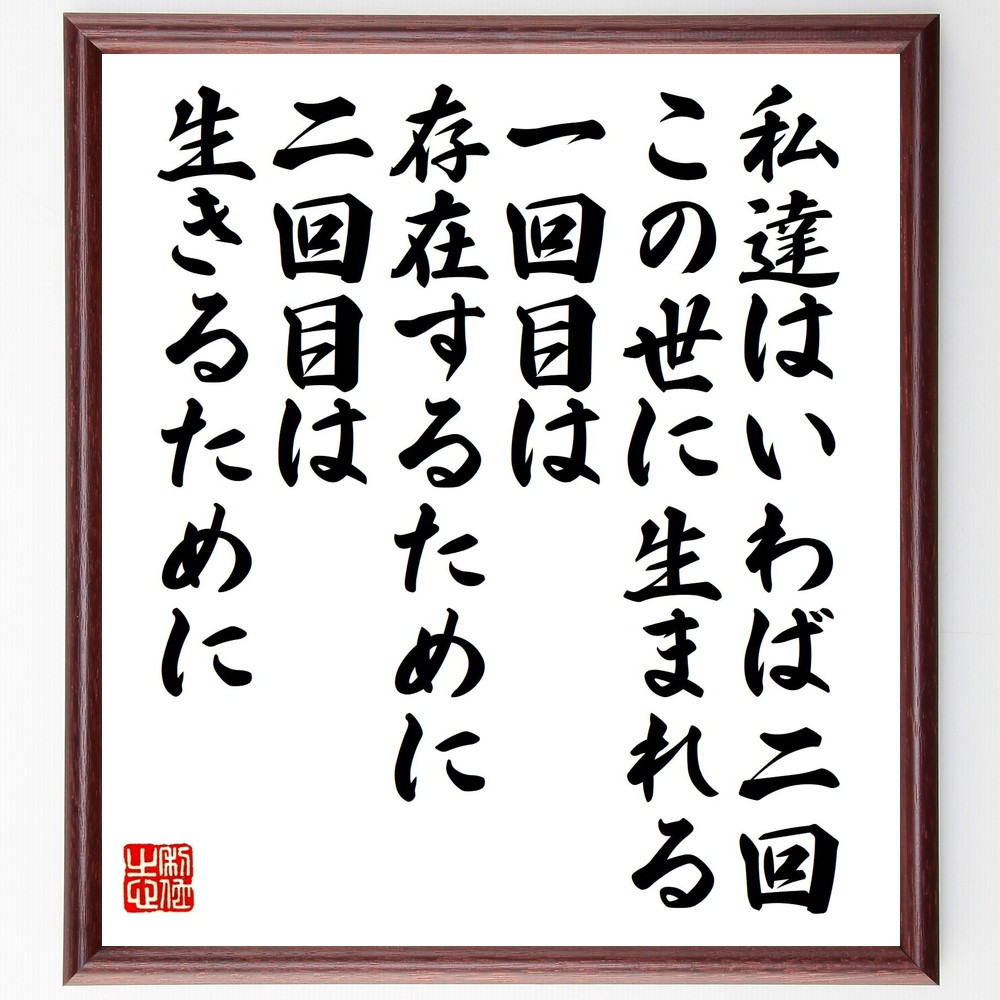 私達はいわば二回
この世に生まれる
一回目は
存在するために
二回目は
生きるために